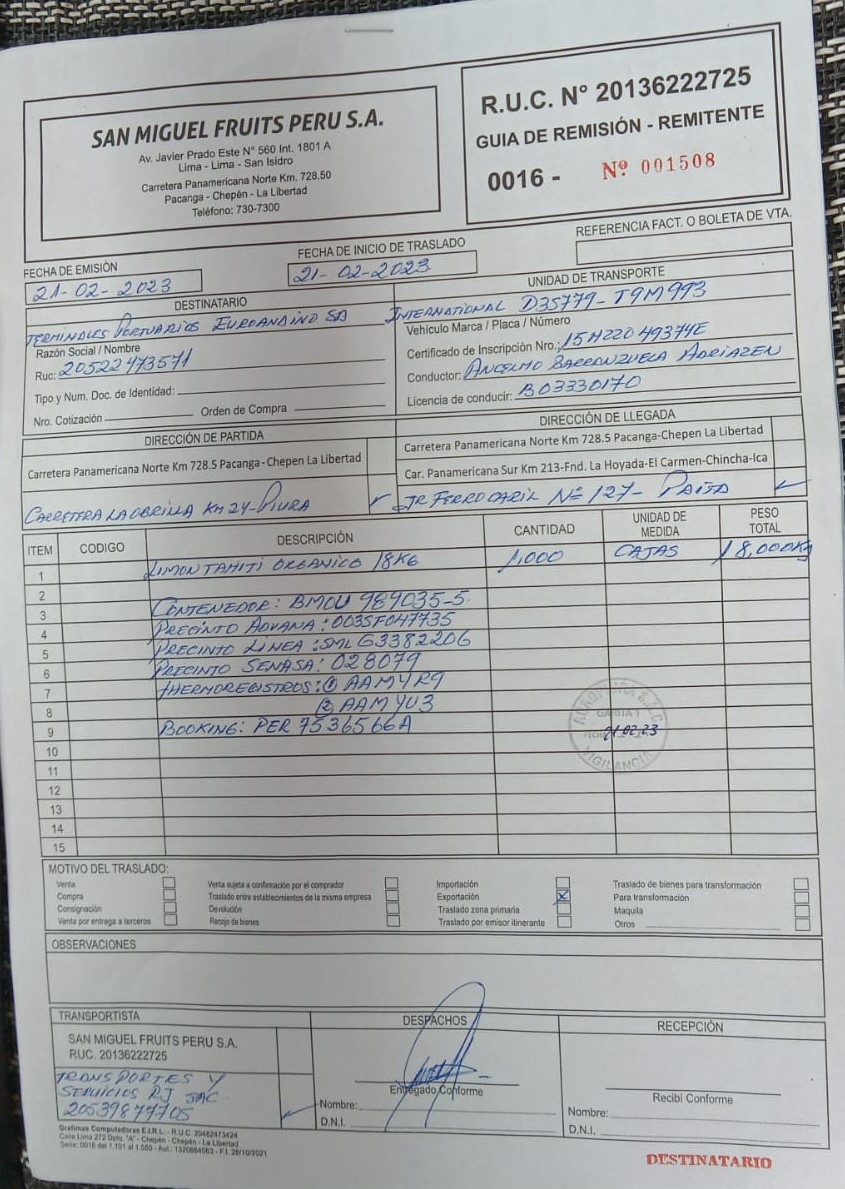 SAN MIGUEL FRUITS PERU S.A.
Av. Javier Prado Este N° 560 Int. 1801 A
Lima - Lima - San Isidro
Carretera Panamericana Norte Km. 728.50
Pacanga - Chepén - La Libertad
Teléfono: 730-7300
R.U.C. N° 20136222725
GUIA DE REMISIÓN - REMITENTE
0016 - Nº 001508
REFERENCIA FACT. O BOLETA DE VTA.
FECHA DE EMISIÓN
21-02-2023
FECHA DE INICIO DE TRASLADO
21-02-2023
DESTINATARIO
TERMINALES PORTUARIOS EUROANDINO SA
Razón Social / Nombre
Ruc: 20522473571
Tipo y Num. Doc. de Identidad:
Nro. Cotización Orden de Compra
UNIDAD DE TRANSPORTE
INTERNATIONAL D3S779-T9M993
Vehiculo Marca / Placa / Número
Certificado de Inscripción Nro.: 15M22049374E
Conductor: ANCELMO BARRANZUELA ADRIAZEN
Licencia de conducir: B03330170
DIRECCIÓN DE PARTIDA
Carretera Panamericana Norte Km 728.5 Pacanga-Chepen La Libertad
CARRETERA LA OBRILLA KM 24-PIURA
DIRECCIÓN DE LLEGADA
Carretera Panamericana Norte Km 728.5 Pacanga-Chepen La Libertad
Car. Panamericana Sur Km 213-Fnd. La Hoyada-El Carmen-Chincha-Ica
JR FERROCARIL Nº 127- PAITA
ITEM CODIGO DESCRIPCIÓN CANTIDAD UNIDAD DE MEDIDA PESO TOTAL
1 LIMON TAHITI ORGANICO 18KG 1,000 CAJAS 18,000Kg
2
3 CONTENEDOR: BMOU 989035-5
4 PRECINTO ADUANA: 0035F047735
5 PRECINTO LINEA: SML G3382206
6 PRECINTO SENASA: 028079
7 THERMOREGISTROS: ① AAM4R9
8 ② AAM4U3
9 BOOKING: PER 7536566A
10
11
12
13
14
15
GARITA 1
21.02.23
VIGILANCIA
MOTIVO DEL TRASLADO:
Venta
Compra
Consignación
Venta por entrega a terceros
Venta sujeta a confirmación por el comprador
Traslado entre establecimientos de la misma empresa
Devolución
Recojo de bienes
Importación
Exportación X
Traslado zona primaria
Traslado por emisor itinerante
Traslado de bienes para transformación
Para transformación
Maquila
Otros
OBSERVACIONES
TRANSPORTISTA
SAN MIGUEL FRUITS PERU S.A.
RUC. 20136222725
TRANSPORTES Y
SERVICIOS RJ SAC
20539877705
DESPACHOS
Entregado Conforme
Nombre:
D.N.I.
RECEPCIÓN
Recibi Conforme
Nombre:
D.N.I.
Grafimas Computadores E.I.R.L. - R.U.C. 20482473424
Calle Lima 272 Dpto. "A" - Chepén - Chepén - La Libertad
Serie: 0016 del 1.101 al 1.600 - Aut.: 1320884063 - F.I. 26/10/2021
DESTINATARIO